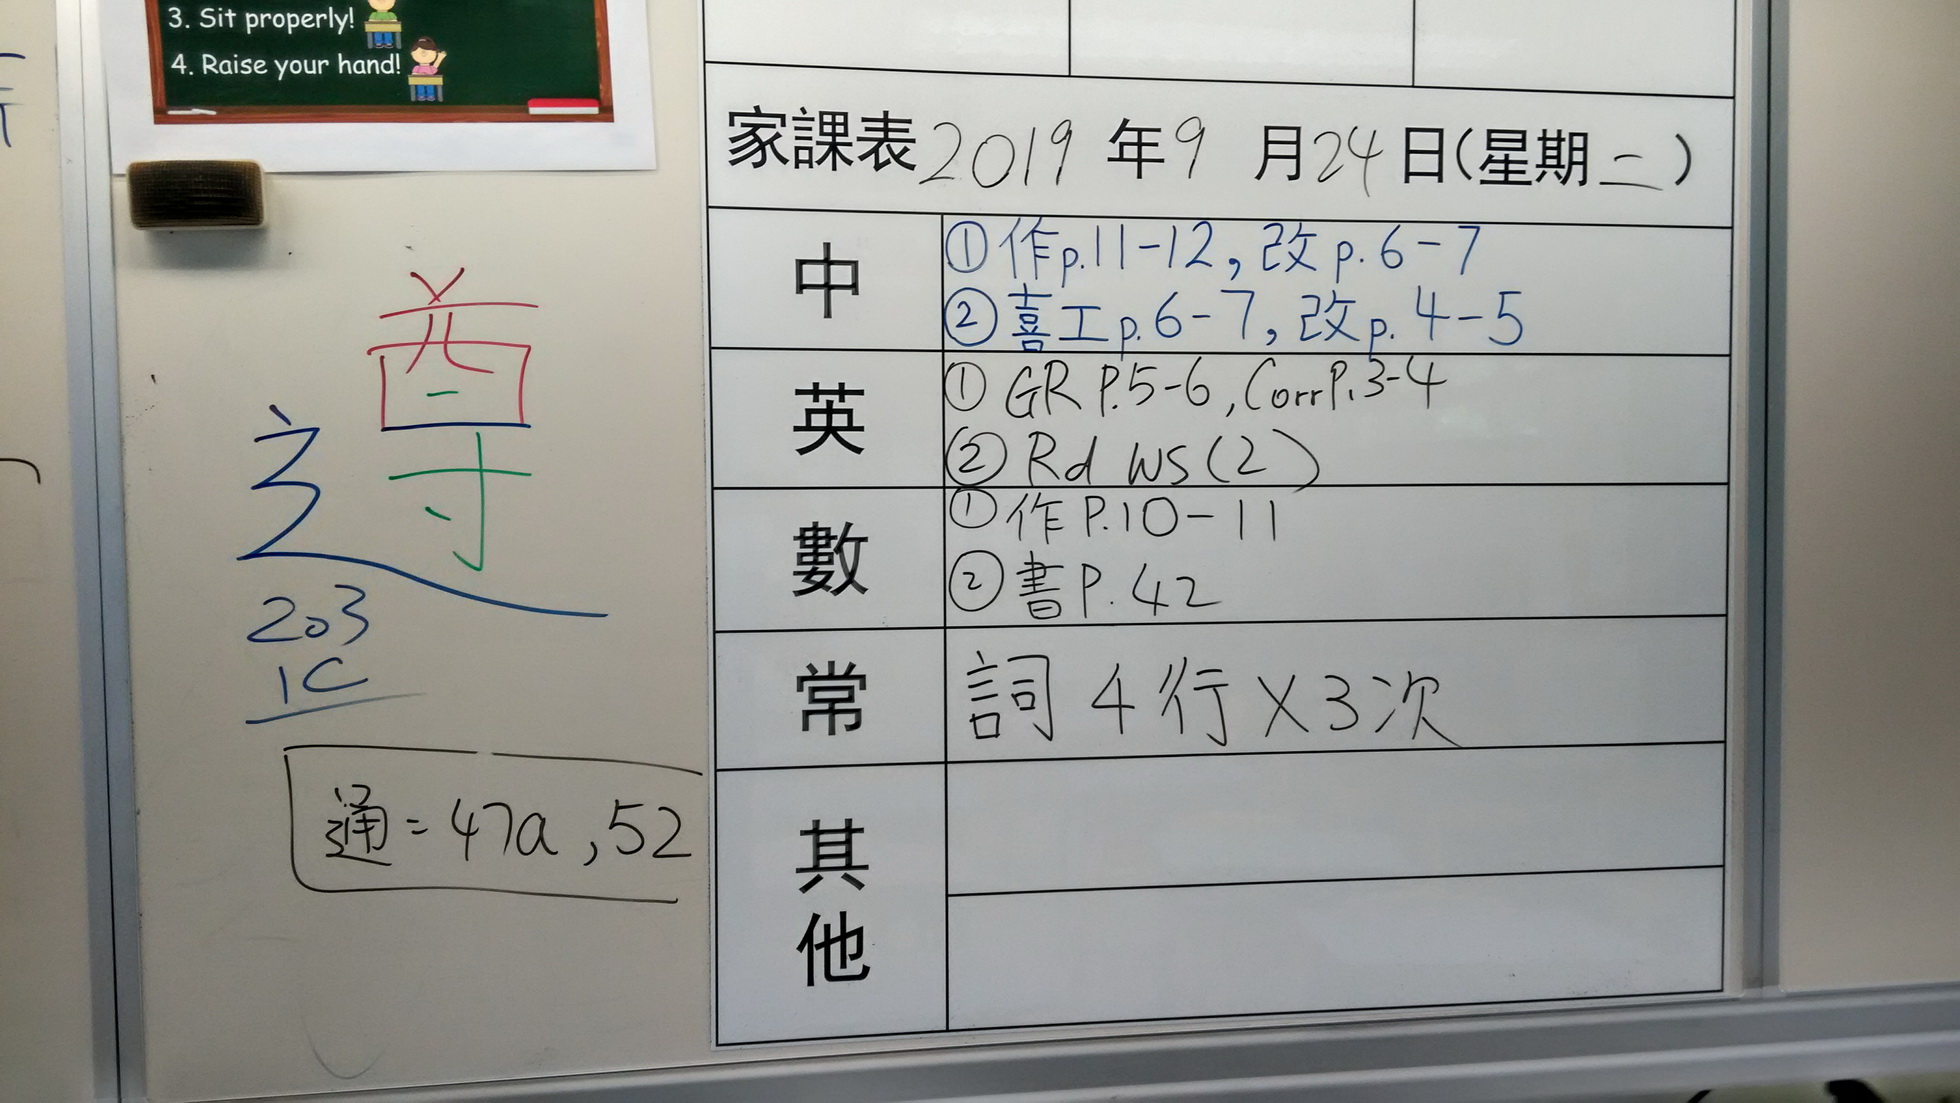 3. Sit properly!
4. Raise your hand!
家課表 2019 年 9 月 24 日(星期二)
中
①作p.11-12,改p.6-7
②喜工p.6-7,改p.4-5
英
①GR P.5-6,Corr P.3-4
②Rd WS(2)
數
①作P.10-11
②書P.42
常
詞4行X3次
其他
遵
203
1C
通=47a,52